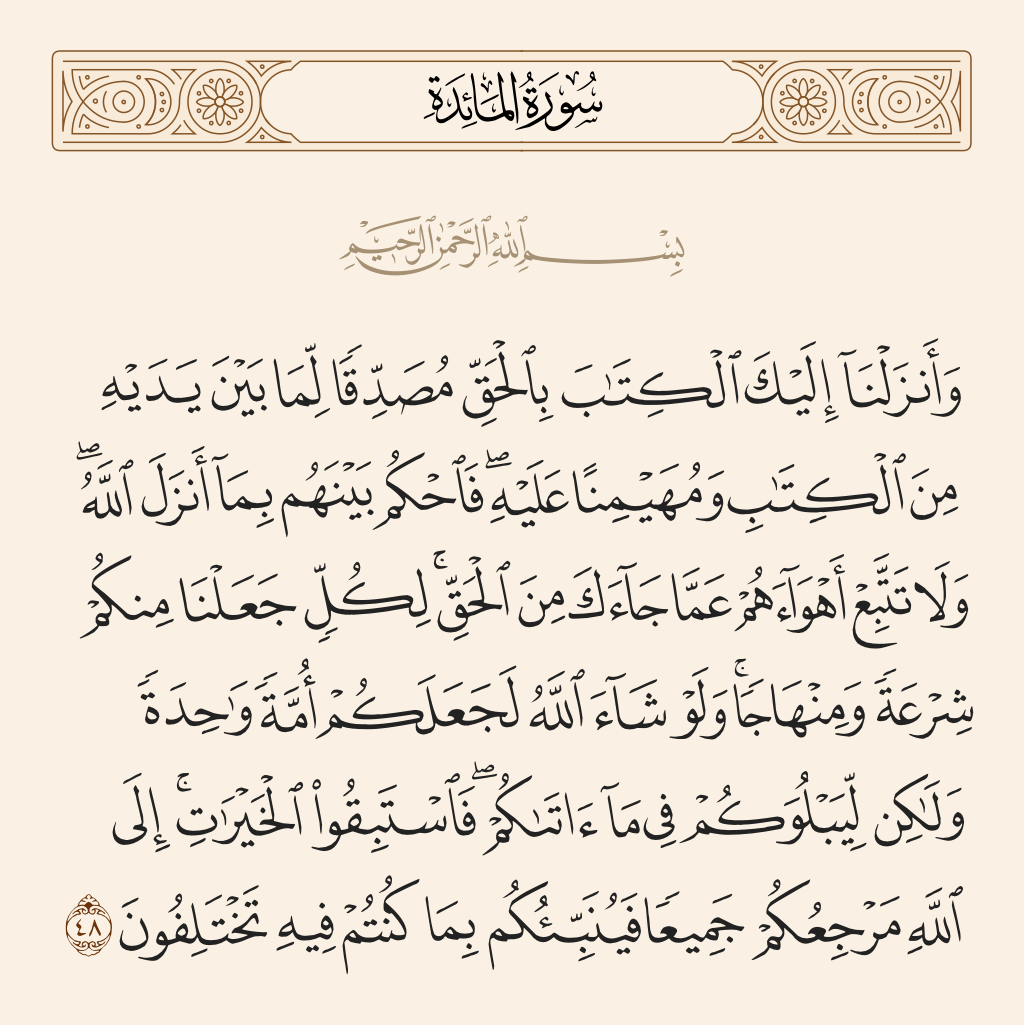 سُورَةُ المَائِدَةِ
بِسْمِ ٱللَّهِ ٱلرَّحْمَٰنِ ٱلرَّحِيمِ
وَأَنزَلْنَآ إِلَيْكَ ٱلْكِتَٰبَ بِٱلْحَقِّ مُصَدِّقًا لِّمَا بَيْنَ يَدَيْهِ
مِنَ ٱلْكِتَٰبِ وَمُهَيْمِنًا عَلَيْهِ ۖ فَٱحْكُم بَيْنَهُم بِمَآ أَنزَلَ ٱللَّهُ ۖ
وَلَا تَتَّبِعْ أَهْوَآءَهُمْ عَمَّا جَآءَكَ مِنَ ٱلْحَقِّ ۚ لِكُلٍّ جَعَلْنَا مِنكُمْ
شِرْعَةً وَمِنْهَاجًا ۚ وَلَوْ شَآءَ ٱللَّهُ لَجَعَلَكُمْ أُمَّةً وَٰحِدَةً
وَلَٰكِن لِّيَبْلُوَكُمْ فِى مَآ ءَاتَىٰكُمْ ۖ فَٱسْتَبِقُوا۟ ٱلْخَيْرَٰتِ ۚ إِلَى
ٱللَّهِ مَرْجِعُكُمْ جَمِيعًا فَيُنَبِّئُكُم بِمَا كُنتُمْ فِيهِ تَخْتَلِفُونَ ٤٨